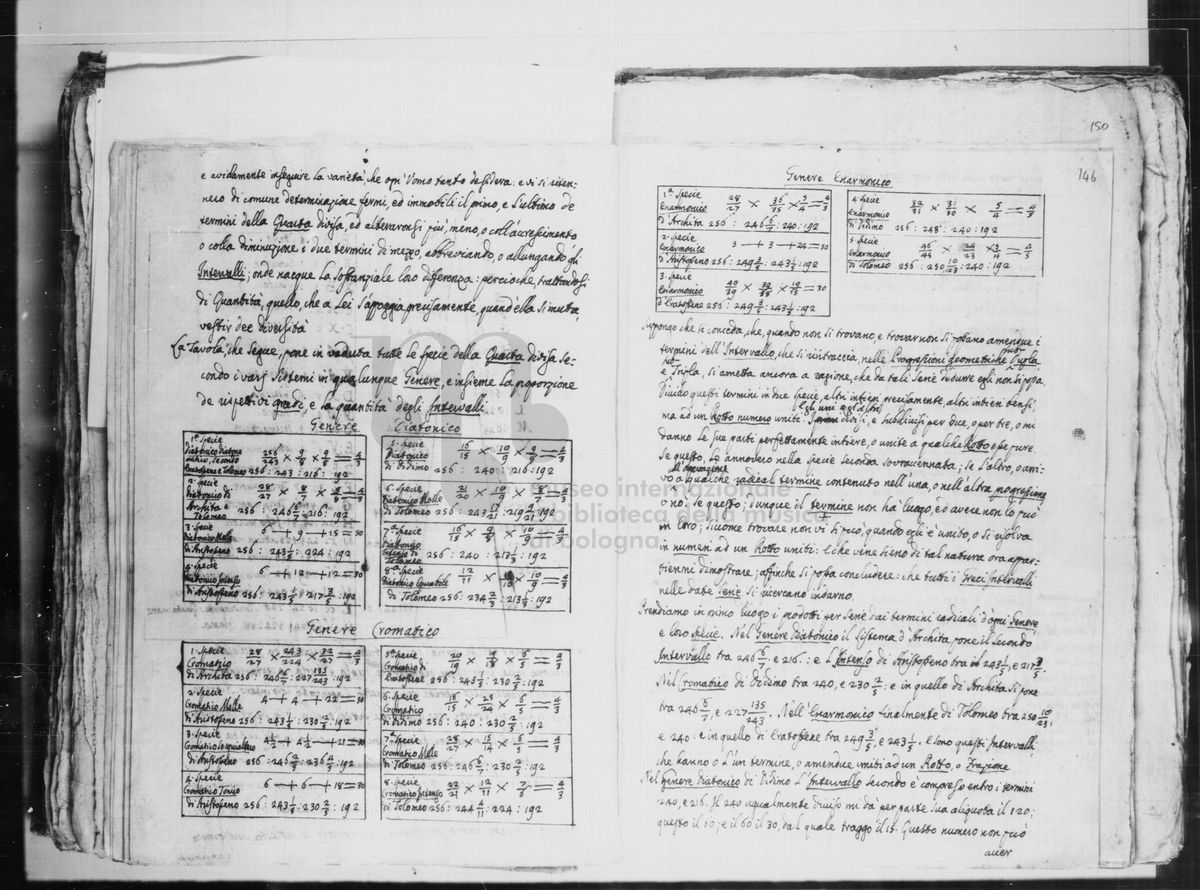 e avidamente inseguire la varietà, che ogn' Uomo tanto desidera: e vi si riten-
nero di comune determinazione fermi, ed immobili il primo, e l'ultimo de
termini della Quarta divisa, ed alterarosi più, meno, o coll'accrescimento
o colla diminuzione i due termini di mezzo, abbreviando, o allungando gli
Intervalli; onde nacque la sostanziale loro differenza: percioche, trattandosi
di Quantità, quello, che a Lei s'appoggia precisamente, quand'ella si muta,
vestir dee diversità
La Tavola, che segue, pone in veduta tutte le specie della Quarta divisa se-
condo i varj Sistemi in qualunque Genere, e insieme la proporzione
de rispettivi gradi, e la quantità degli Intervalli
Genere Diatonico
1ª Specie
Diatonico Diatono
secondo 256/243 × 9/8 × 9/8 = 4/3
Eratostene e Tolomeo 256: 243: 216: 192
2ª Specie
Diatonico di 28/27 × 8/7 × 9/8 = 4/3
Archita e Tolomeo 256: 246 6/7: 216: 192
3ª Specie
Diatonico Molle 6 + 9 + 15 = 30
di Aristosseno 256: 243 1/5: 224: 192
4ª Specie
Diatonico Intenso 6 + 12 + 12 = 30
di Aristosseno 256: 243 1/5: 217 3/5: 192
5ª Specie
Diatonico 16/15 × 10/9 × 9/8 = 4/3
di Didimo 256: 240: 216: 192
6ª Specie
Diatonico Molle 21/20 × 10/9 × 8/7 = 4/3
di Tolomeo 256: 243 17/21: 219 9/21: 192
7ª Specie
Diatonico 16/15 × 9/8 × 10/9 = 4/3
Intenso di Tolomeo 256: 240: 213 1/3: 192
8ª Specie
Diatonico Equabile 12/11 × 11/10 × 10/9 = 4/3
di Tolomeo 256: 234 2/3: 213 1/3: 192
Genere Cromatico
1ª Specie
Cromatico 28/27 × 243/224 × 32/27 = 4/3
di Archita 256: 246 6/7: 227 135/243: 192
2ª Specie
Cromatico Molle 4 + 4 + 22 = 30
di Aristosseno 256: 243 1/5: 230 2/5: 192
3ª Specie
Cromatico Sesquialtero 4 1/2 + 4 1/2 + 21 = 30
di Aristosseno 256: 246 2/5: 236 4/5: 192
4ª Specie
Cromatico Tonico 6 + 6 + 18 = 30
di Aristosseno 256: 243 1/5: 230 2/5: 192
5ª Specie
Cromatico di 20/19 × 19/18 × 6/5 = 4/3
Eratostene 256: 243 1/5: 230 2/5: 192
6ª Specie
Cromatico 16/15 × 25/24 × 6/5 = 4/3
di Didimo 256: 240: 230 2/5: 192
7ª Specie
Cromatico Molle 28/27 × 15/14 × 6/5 = 4/3
di Tolomeo 256: 246 6/7: 230 2/5: 192
8ª Specie
Cromatico Intenso 22/21 × 12/11 × 7/6 = 4/3
di Tolomeo 256: 244 4/11: 224: 192
150
146
Genere Enarmonico
1ª Specie
Enarmonico 28/27 × 36/35 × 5/4 = 4/3
d'Archita 256: 246 6/7: 240: 192
2ª Specie
Enarmonico 3 + 3 + 24 = 30
d'Aristosseno 256: 249 3/5: 243 1/5: 192
3ª Specie
Enarmonico 40/39 × 39/38 × 19/15 = 30
d'Eratostene 256: 249 3/5: 243 1/5: 192
4ª Specie
Enarmonico 32/31 × 31/30 × 5/4 = 4/3
di Didimo 256: 248: 240: 192
5ª Specie
Enarmonico 46/45 × 24/23 × 5/4 = 4/3
di Tolomeo 256: 250 10/23: 240: 192
Suppongo che si conceda, che, quando non si trovano, e trovar non si possano amendue i
termini dell'Intervallo, che si rintraccia, nelle Progressioni geometriche sub Dupla,
e Tripla, si ametta ancora a ragione, che da tali Serie dedurre egli non si possa.
Divido questi termini in due specie, altri intieri precisamente, altri intieri bensì,
ma ad un Rotto numero uniti. Gli uni e gli altri divisi, e suddivisi per due, o per tre, o mi
danno le sue parti perfettamente intiere, o unite a qualche Rotto che pure.
Se questo, le annovero nella specie seconda sovraccennata; se l'altro, o arri-
vo coll'operazione a qualche radical termine contenuto nell'una, o nell'altra progressione
o no. Se questo; dunque il termine non ha luogo, ed avere non lo può
in loro; siccome trovare non vi si può, quando egli è unito, o si risolva
in numeri ad un Rotto uniti: Il che viene sieno di tal natura ora appar-
tiemmi dimostrare; affinche si possa concludere: che tutti i Greci Intervalli
nelle date Serie si ricercano indarno.
Prendiamo in primo luogo i prodotti per Serie dai termini radicali d'ogni Genere
e loro specie. Nel Genere Diatonico il Sistema d'Archita pone il secondo
Intervallo tra 246 6/7, e 216: e l'Intenso di Aristosseno tra 243 1/5, e 217 3/5.
Nel Cromatico di Didimo tra 240, e 230 2/5: e in quello di Archita si pone
tra 246 6/7, e 227 135/243. Nell'Enarmonico finalmente di Tolomeo tra 250 10/23,
e 240: e in quello di Eratostene tra 249 3/5, e 243 1/5. E sono questi Intervalli
che hanno o l'un termine, o amendue uniti ad un Rotto, o Frazione
Nel genere Diatonico di Didimo l'Intervallo secondo è compreso entro i termini
240, e 216. Il 240 ugualmente diviso mi dà per parte sua aliquota il 120;
questo il 60; e il 60 il 30, dal quale traggo il 15. Questo numero non può
aver
museo internazionale
e biblioteca della musica
di bologna